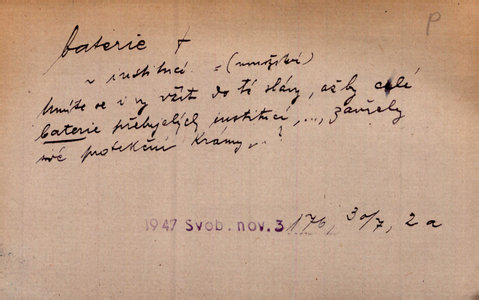 P
baterie †
~ institucí = (množství)
se i vy vžít do té slávy, až by celé
baterie přebujelých institucí, ..., zavřely
své protekční krámy..?
1947 Svob. nov. 3 176, 30/7, 2 a